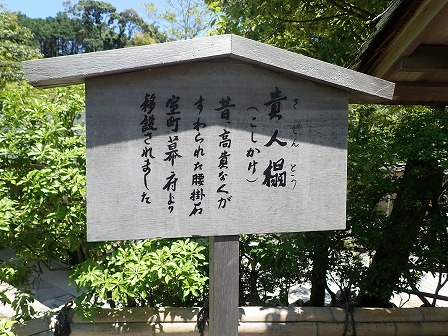 貴人榻
きにんとう
(こしかけ)
昔高貴な人が
すわられた腰掛石
室町幕府より
移設されました